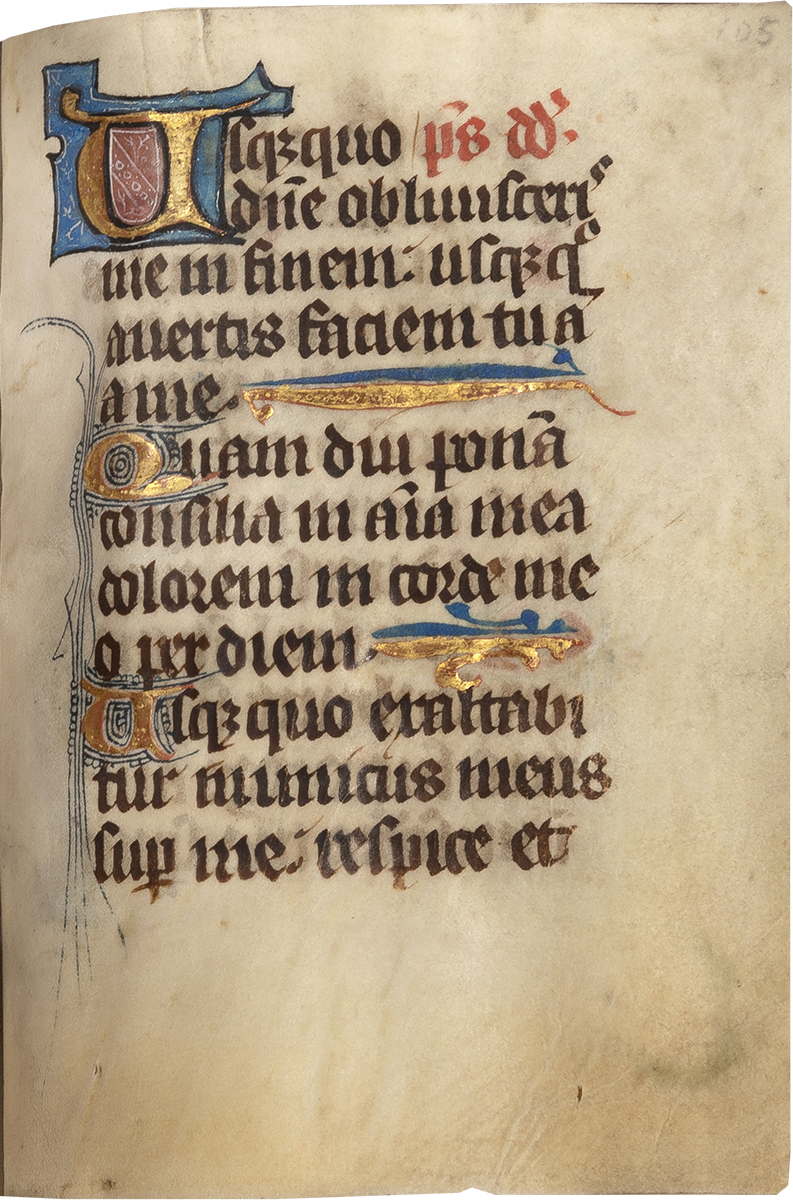 105
Usqꝫquo p̄s dd̄.
dn̄e obliuisceris
me in finem: usqꝫq̊
auertis faciem tuā
a me.
Quam diu ponā
consilia in aīa mea
dolorem in corde me
o per diem
Usqꝫ quo exaltabi
tur inimicus meus
suꝑ me: respice et